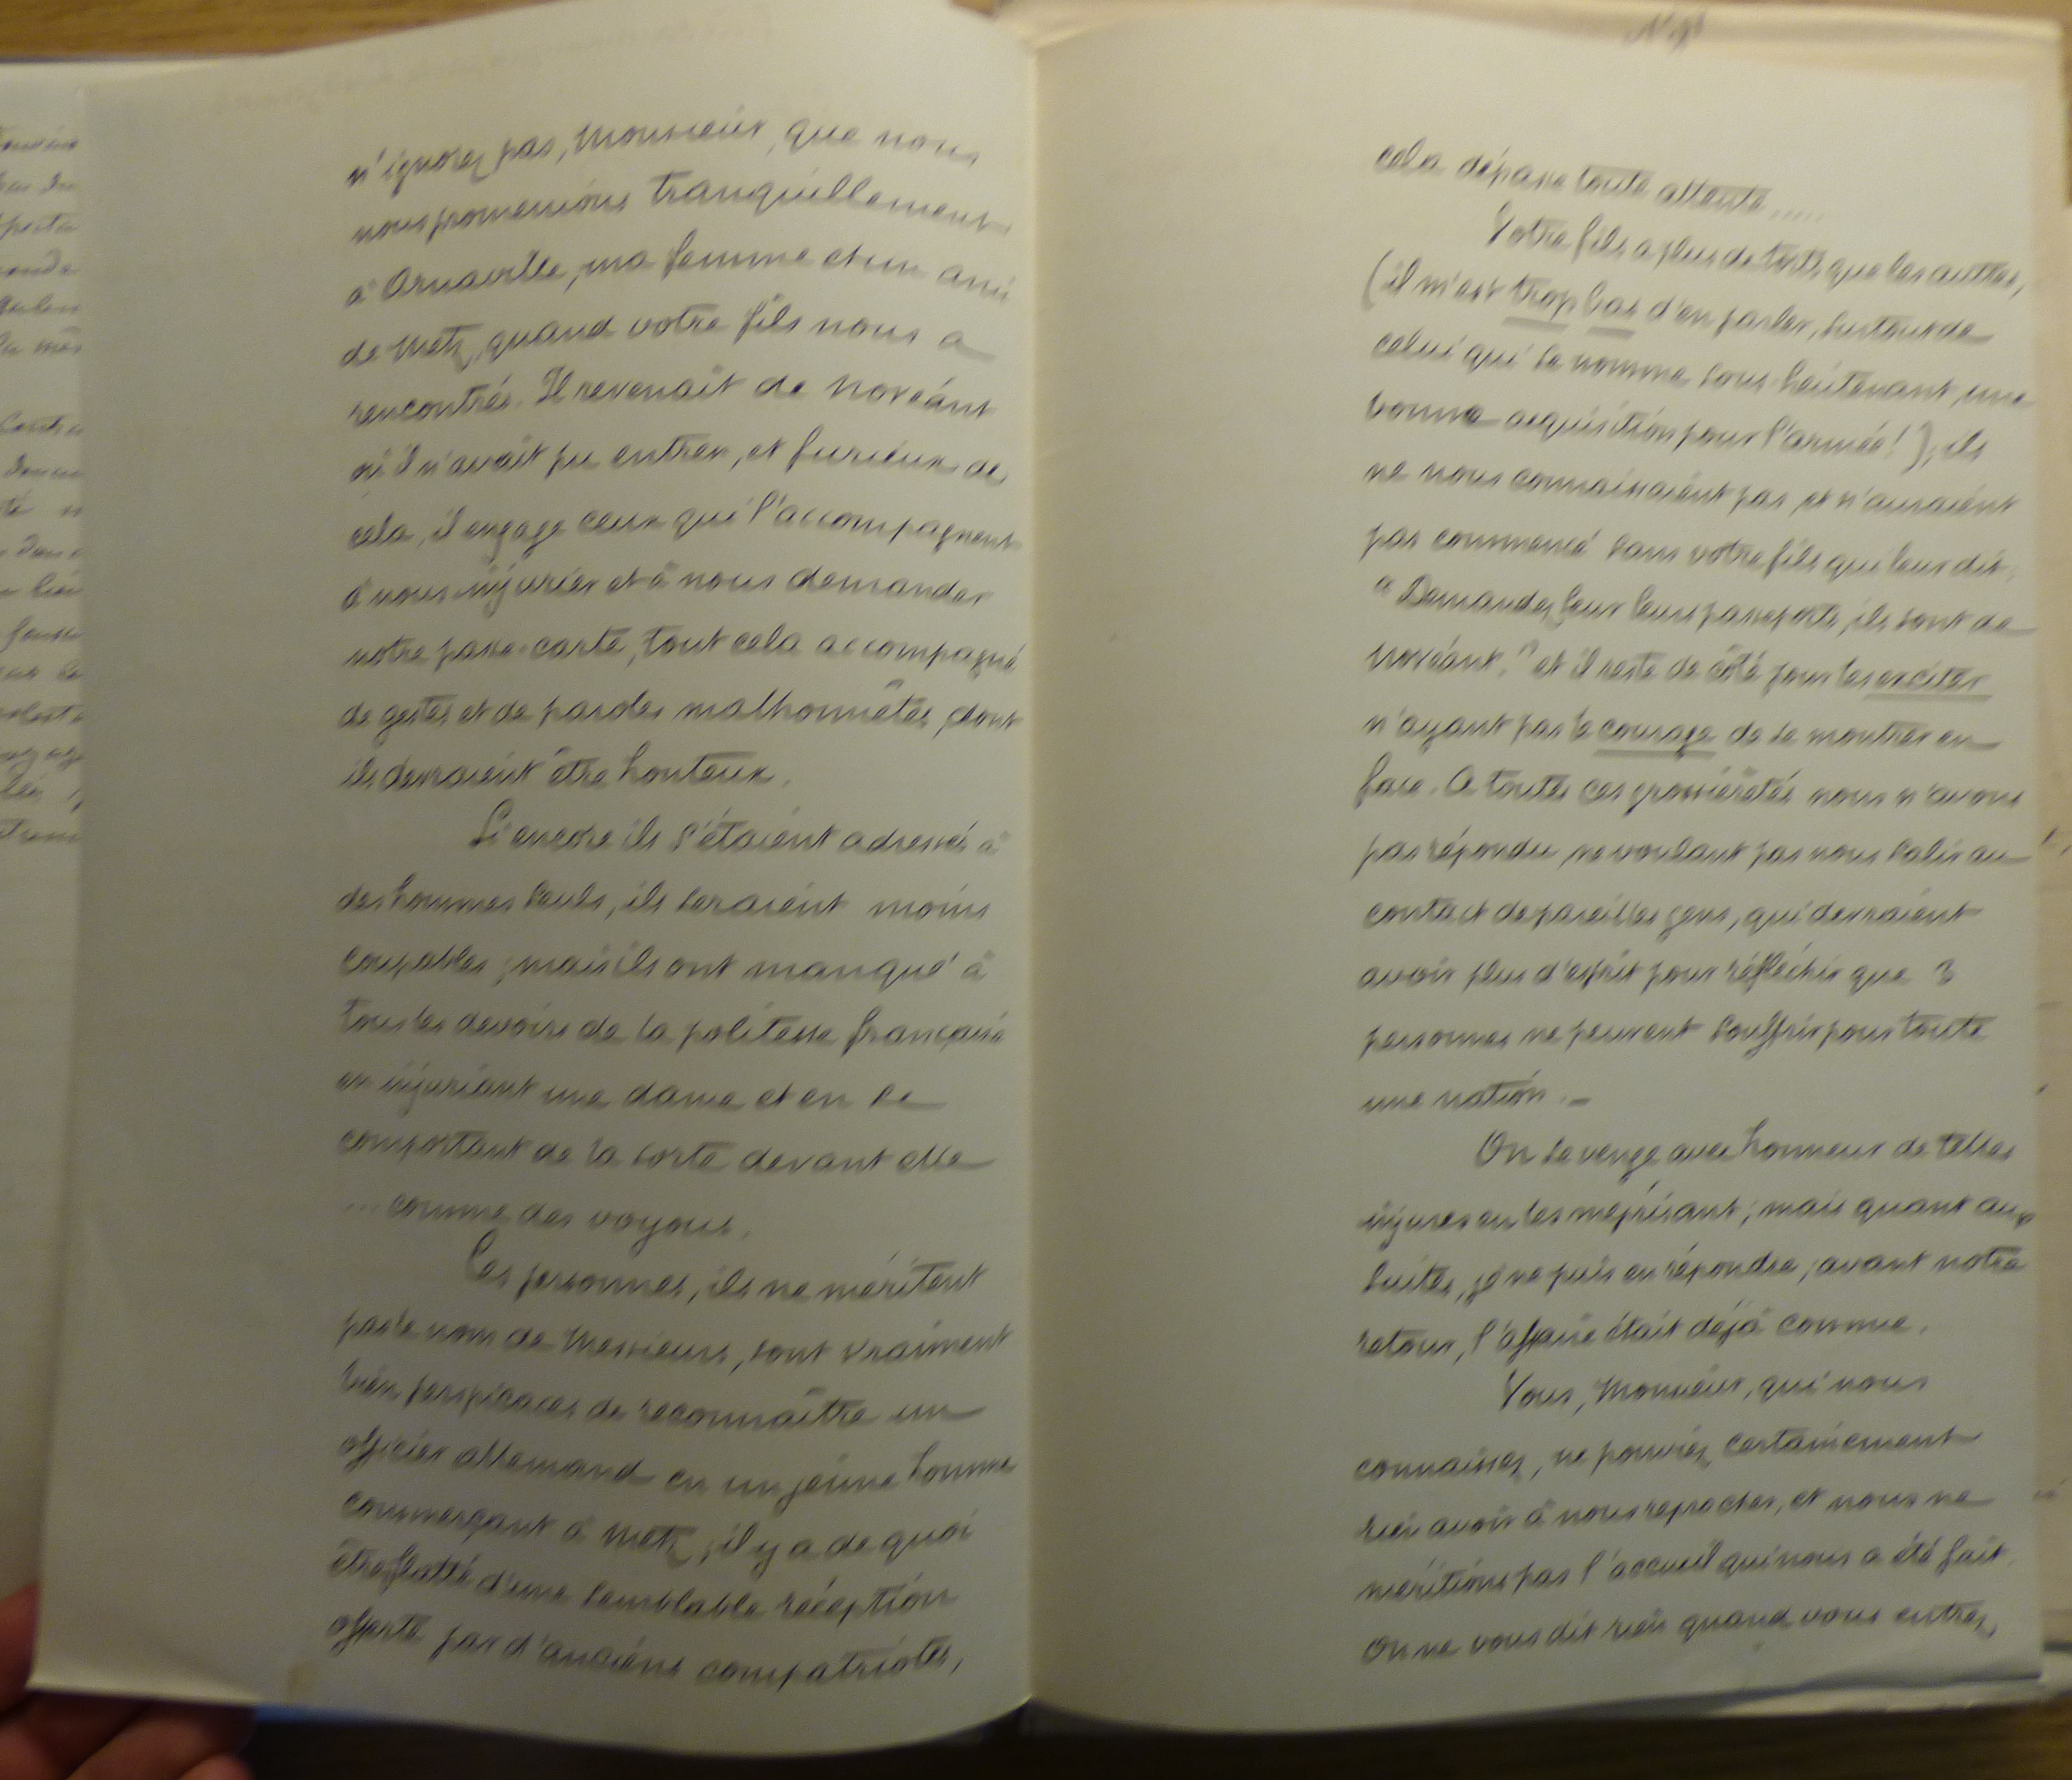 n'ignorez pas, Monsieur, que nous
nous promenions tranquillement
à Arnaville, ma femme et un ami
de Metz, quand votre fils nous a
rencontrés. Il revenait de Novéant
où il n'avait pu entrer, et furieux de
cela, il engage ceux qui l'accompagnent
à nous injurier et à nous demander
notre passe-carte, tout cela accompagné
de gestes et de paroles malhonnêtes, dont
ils devraient être honteux.
Si encore ils s'étaient adressés à
des hommes seuls, ils seraient moins
coupables ; mais ils ont manqué à
tous les devoirs de la politesse française
en injuriant une dame et en se
comportant de la sorte devant elle
... comme des voyous.
Ces personnes, ils ne méritent
pas le nom de Messieurs, sont vraiment
bien perspicaces de reconnaître un
officier allemand en un jeune homme
commerçant à Metz ; il y a de quoi
être flatté d'une semblable réception
offerte par d'anciens compatriotes,
cela dépasse toute attente.....
Votre fils a plus de torts que les autres,
(il m'est trop bas d'en parler, surtout de
celui qui se nomme sous-lieutenant, une
bonne acquisition pour l'armée !), ils
ne nous connaissaient pas et n'auraient
pas commencé sans votre fils qui leur dit :
"Demandez leur leurs passeports, ils sont de
Novéant." et il reste de côté pour les exciter
n'ayant pas le courage de se montrer en
face. A toutes ces grossièretés nous n'avons
pas répondu, ne voulant pas nous salir au
contact de pareilles gens, qui devraient
avoir plus d'esprit pour réfléchir que 3
personnes ne peuvent souffrir pour toute
une nation. _
On se venge avec honneur de telles
injures en les méprisant ; mais quant aux
suites, je ne puis en répondre ; avant notre
retour, l'affaire était déjà connue.
Vous, Monsieur, qui nous
connaissez, ne pouviez certainement
rien avoir à nous reprocher, et nous ne
méritions pas l'accueil qui nous a été fait.
On ne vous dit rien quand vous entrez,